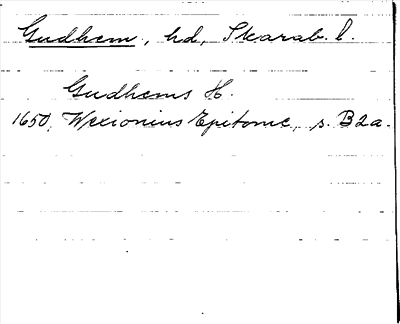 Gudhem, hd, Skarab. l.
Gudhems H.
1650, Wexionius Epitome, s. B2a.